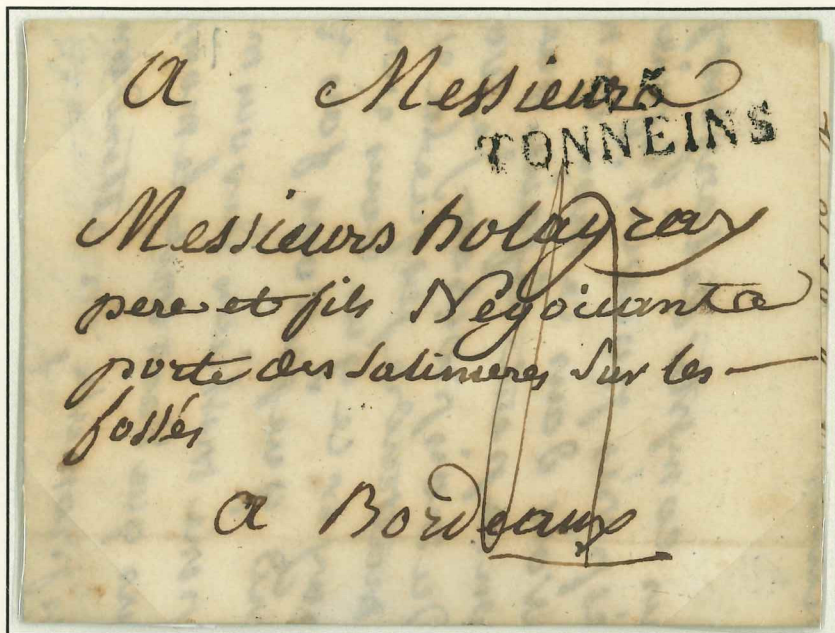 a Messieurs
TONNEINS
Messieurs holagray
pere et fils Négociant a
porte des Salinieres Sur les
fossés
a Bordeaux